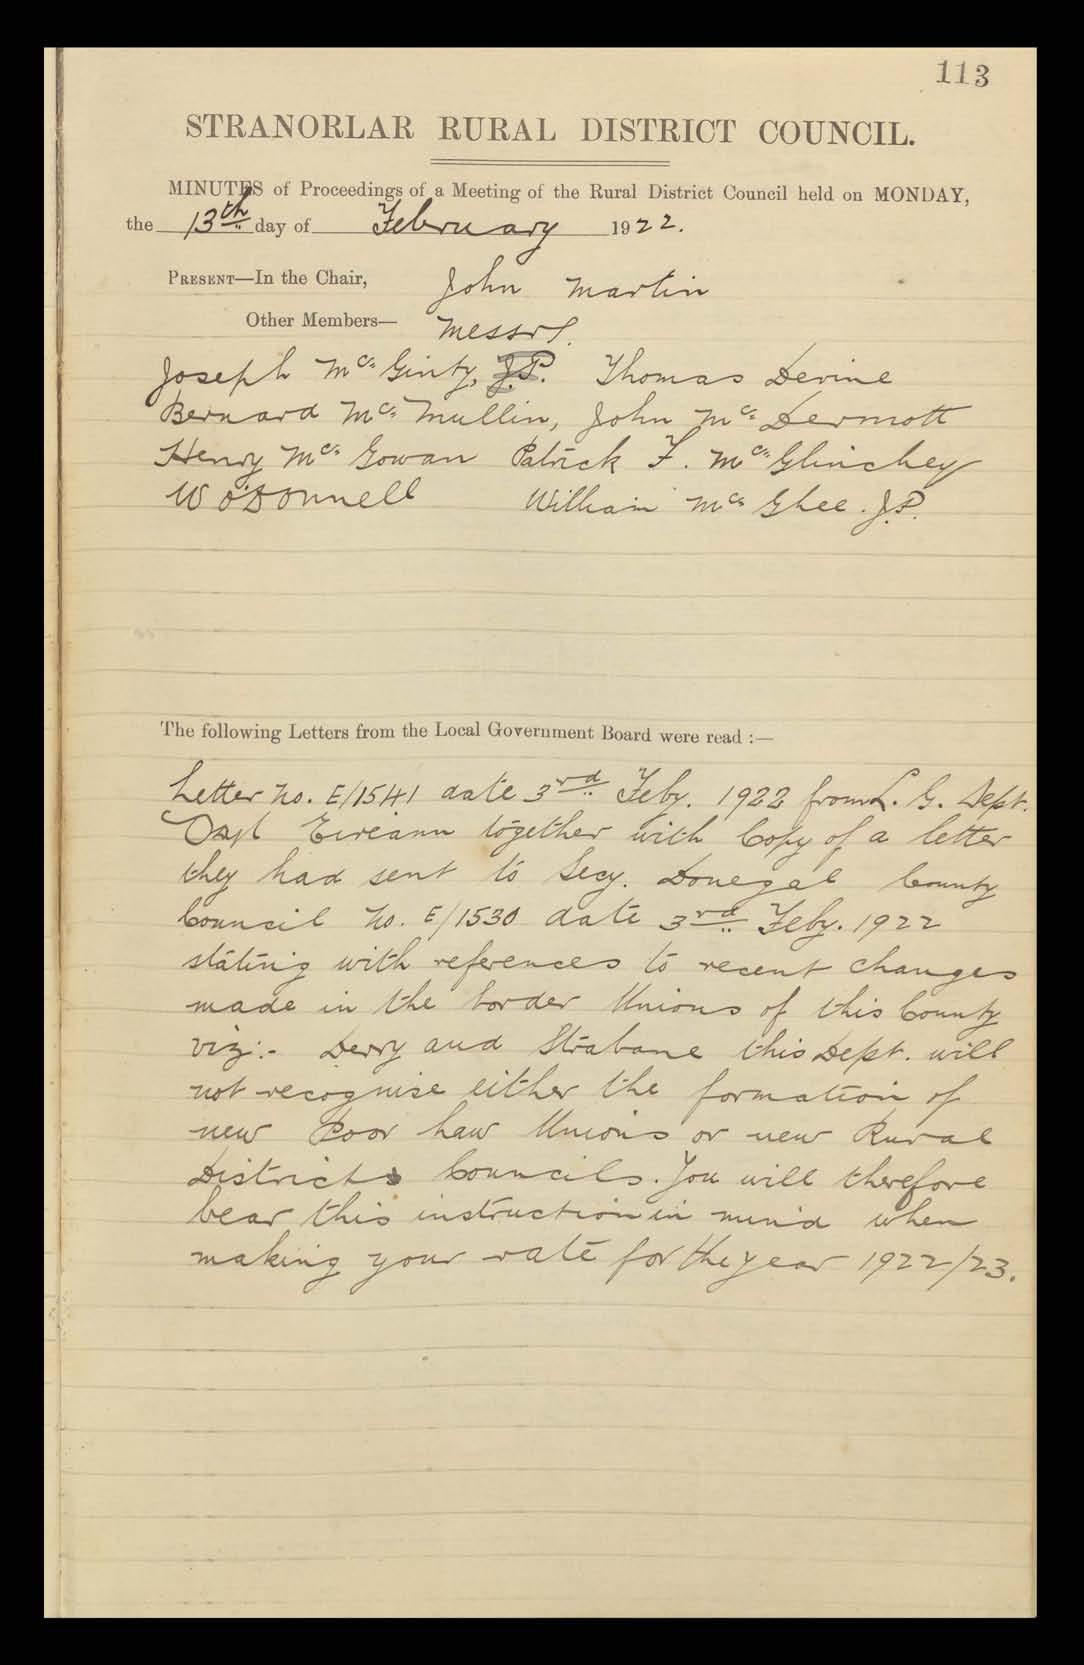 113
STRANORLAR RURAL DISTRICT COUNCIL.
MINUTES of Proceedings of a Meeting of the Rural District Council held on MONDAY,
the 13th day of February 1922.
PRESENT—In the Chair, John Martin
Other Members— Messrs.
Joseph Mc Ginty, J.P. Thomas Devine
Bernard Mc Mullin, John Mc Dermott
Henry Mc Gowan Patrick F. Mc Glinchey
W O'Donnell William Mc Ghee. J.P.
The following Letters from the Local Government Board were read :—
Letter No. E/1541 date 3rd Feby. 1922 from L. G. Dept.
Eireann together with Copy of a letter
they had sent to Secy. Donegal County
Council No. E/1530 date 3rd Feby. 1922
stating with references to recent changes
made in the border Unions of this County
viz:- Derry and Strabane this Dept. will
not recognise either the formation of
new Poor Law Unions or new Rural
Districts Councils. You will therefore
bear this instruction in mind when
making your rate for the year 1922/23.